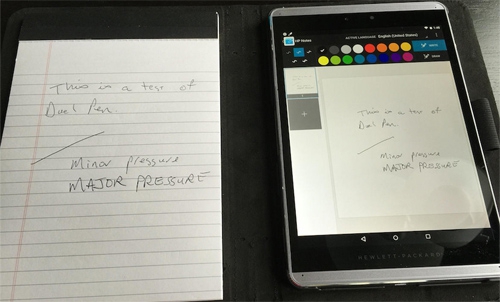 This is a test of
Duel Pen.
Minor pressure
MAJOR PRESSURE
HP Notes
ACTIVE LANGUAGE English (United States)
This is a test of
Duel Pen
Minor pressure
MAJOR PRESSURE
HEWLETT-PACKARD